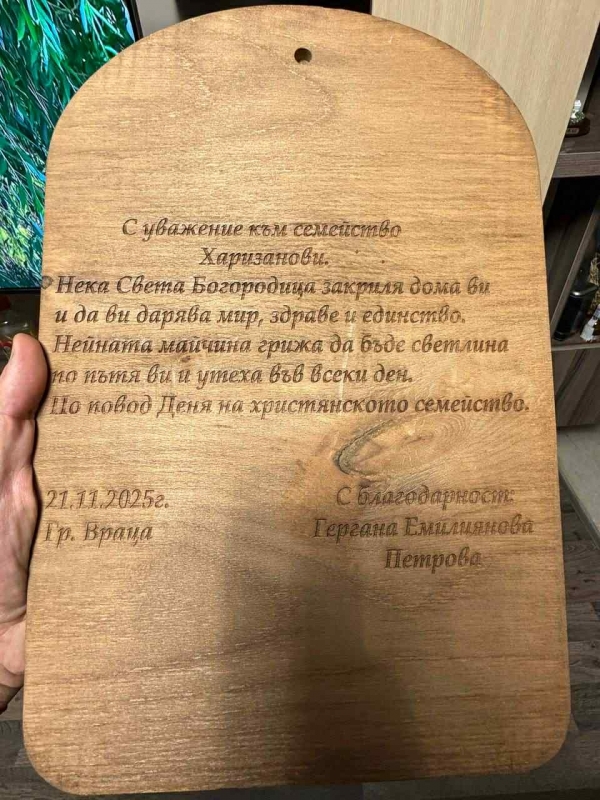 С уважение към семейство
Харизанови.
Нека Света Богородица закриля дома ви
и да ви дарява мир, здраве и единство.
Нейната майчина грижа да бъде светлина
по пътя ви и утеха във всеки ден.
По повод Деня на християнското семейство.
21.11.2025г.
Гр. Враца
С благодарност:
Гергана Емилиянова
Петрова